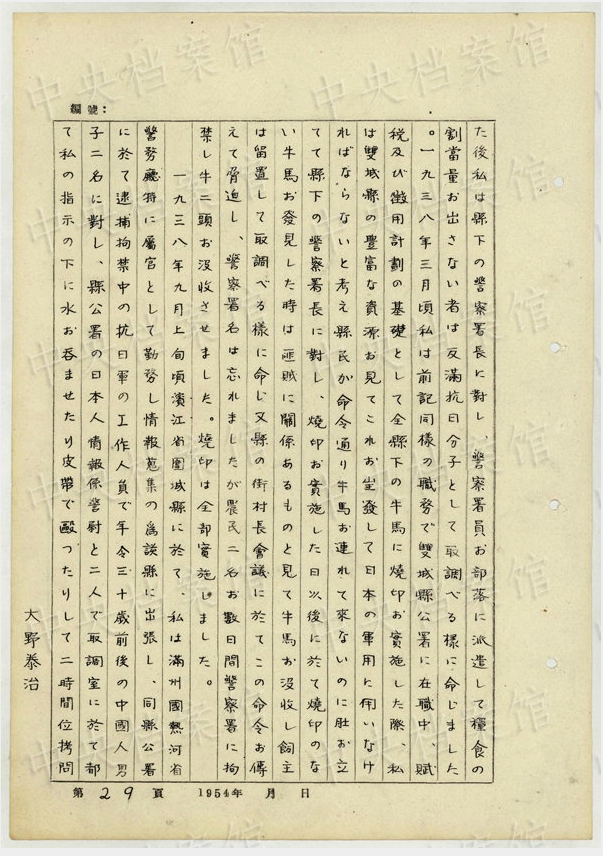 編號：
た後私は縣下の警察署長に対し、警察署員お部落に派遣して糧食の
割当量お出さない者は反満抗日分子として取調べる様に命じました
。一九三八年三月頃私は前記同様の職務で雙城縣公署に在職中、賦
税及び徴用計劃の基礎として全縣下の牛馬に燒印お実施した際、私
は雙城縣の豊富な資源お見てこれお出発して日本の軍用に用いなけ
ればならないと考え縣民が命令通り牛馬お連れて來ないのに肚お立
てて縣下の警察署長に対し、燒印お実施した日以後に於て燒印のな
い牛馬お発見した時は匪賊に關係あるものと見て牛馬お没收し飼主
は留置して取調べる様に命じ又縣の街村長會議に於てこの命令お傳
えて脅迫し、警察署名は忘れましたが農民二名お数日間警察署に拘
禁し牛二頭お没收させました。燒印は全部実施しました。
一九三八年九月上旬頃濱江省圍城縣に於て、私は満州國熱河省
警務廳特に屬官として勤務し情報蒐集の為該縣に出張し、同縣公署
に於て逮捕拘禁中の抗日軍の工作人員で年令三十歳前後の中國人男
子二名に対し、縣公署の日本人情報係警尉と二人で取調室に於て都
て私の指示の下に水お呑ませたり皮帶で毆つたりして二時間位拷問
大野泰治
第29頁 1954年 月 日
中央档案馆